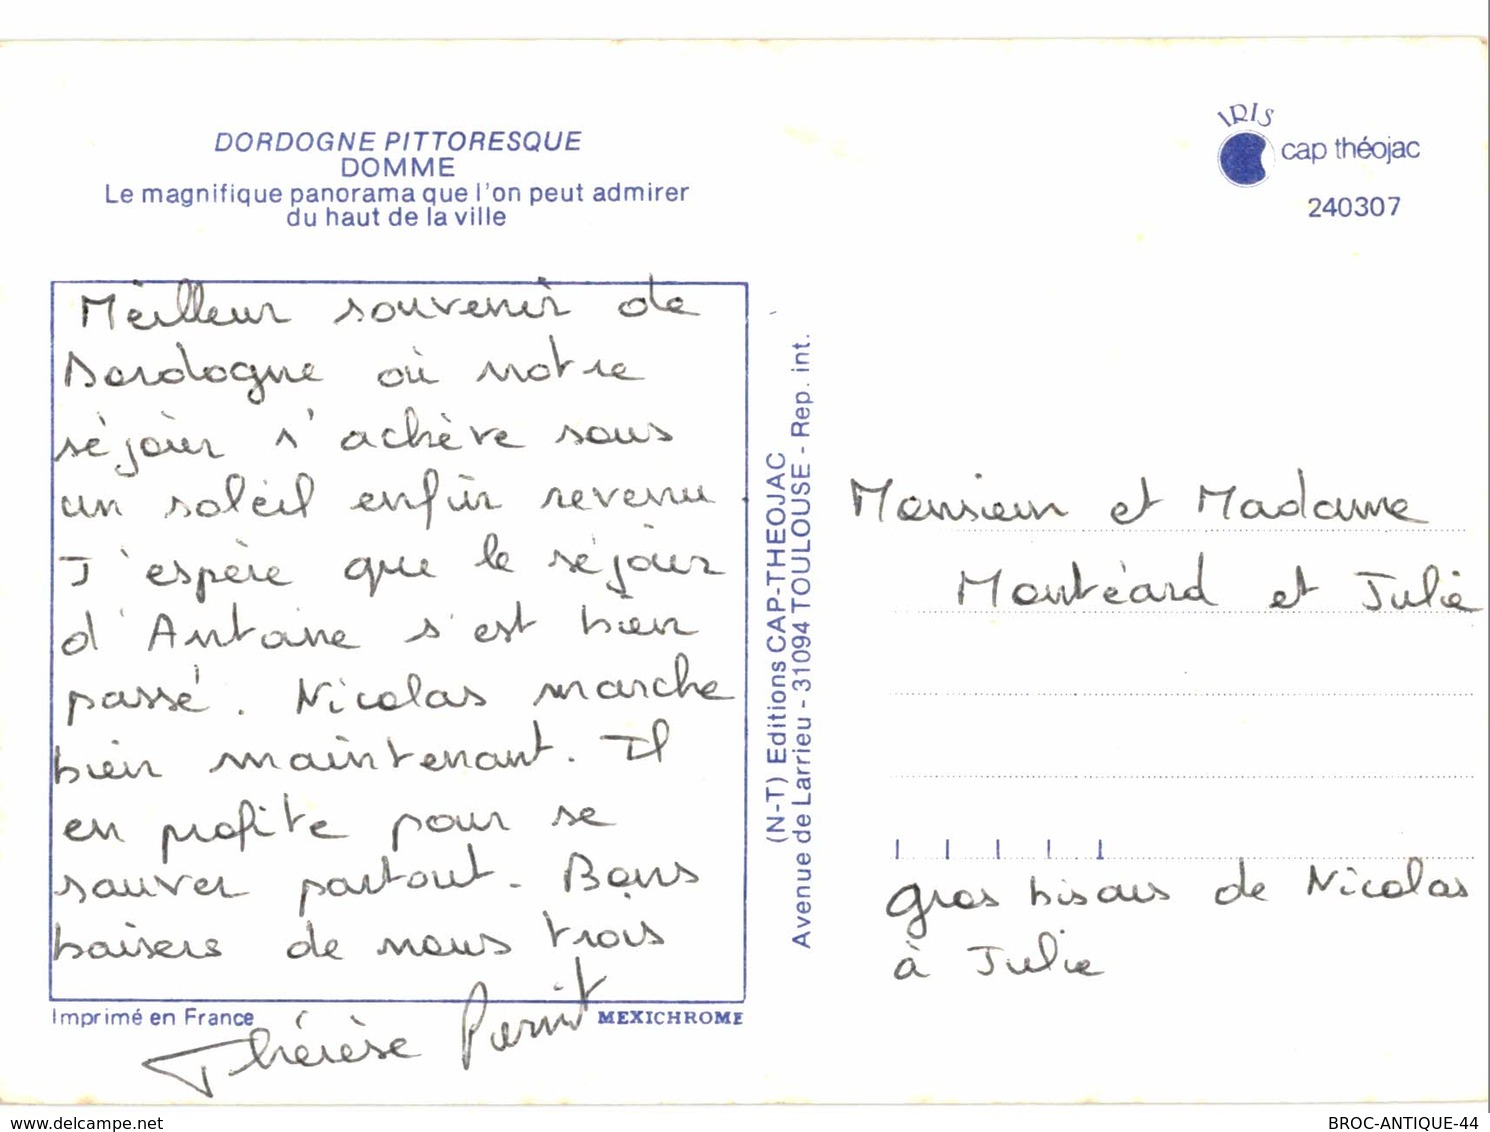 DORDOGNE PITTORESQUE
DOMME
Le magnifique panorama que l'on peut admirer
du haut de la ville
IRIS
cap théojac
240307
Meilleur souvenir de
Dordogne où notre
séjour s'achève sous
un soleil enfin revenu
J'espère que le séjour
d'Antoine s'est bien
passé. Nicolas marche
bien maintenant. Il
en profite pour se
sauver partout. Bons
baisers de nous trois
Thérèse
Imprimé en France
MEXICHROME
(N-T) Editions CAP-THEOJAC
Avenue de Larrieu - 31094 TOULOUSE - Rep. int.
Monsieur et Madame
Montéard et Julie
gros bisous de Nicolas
à Julie
delcampe.net
BROC-ANTIQUE-44